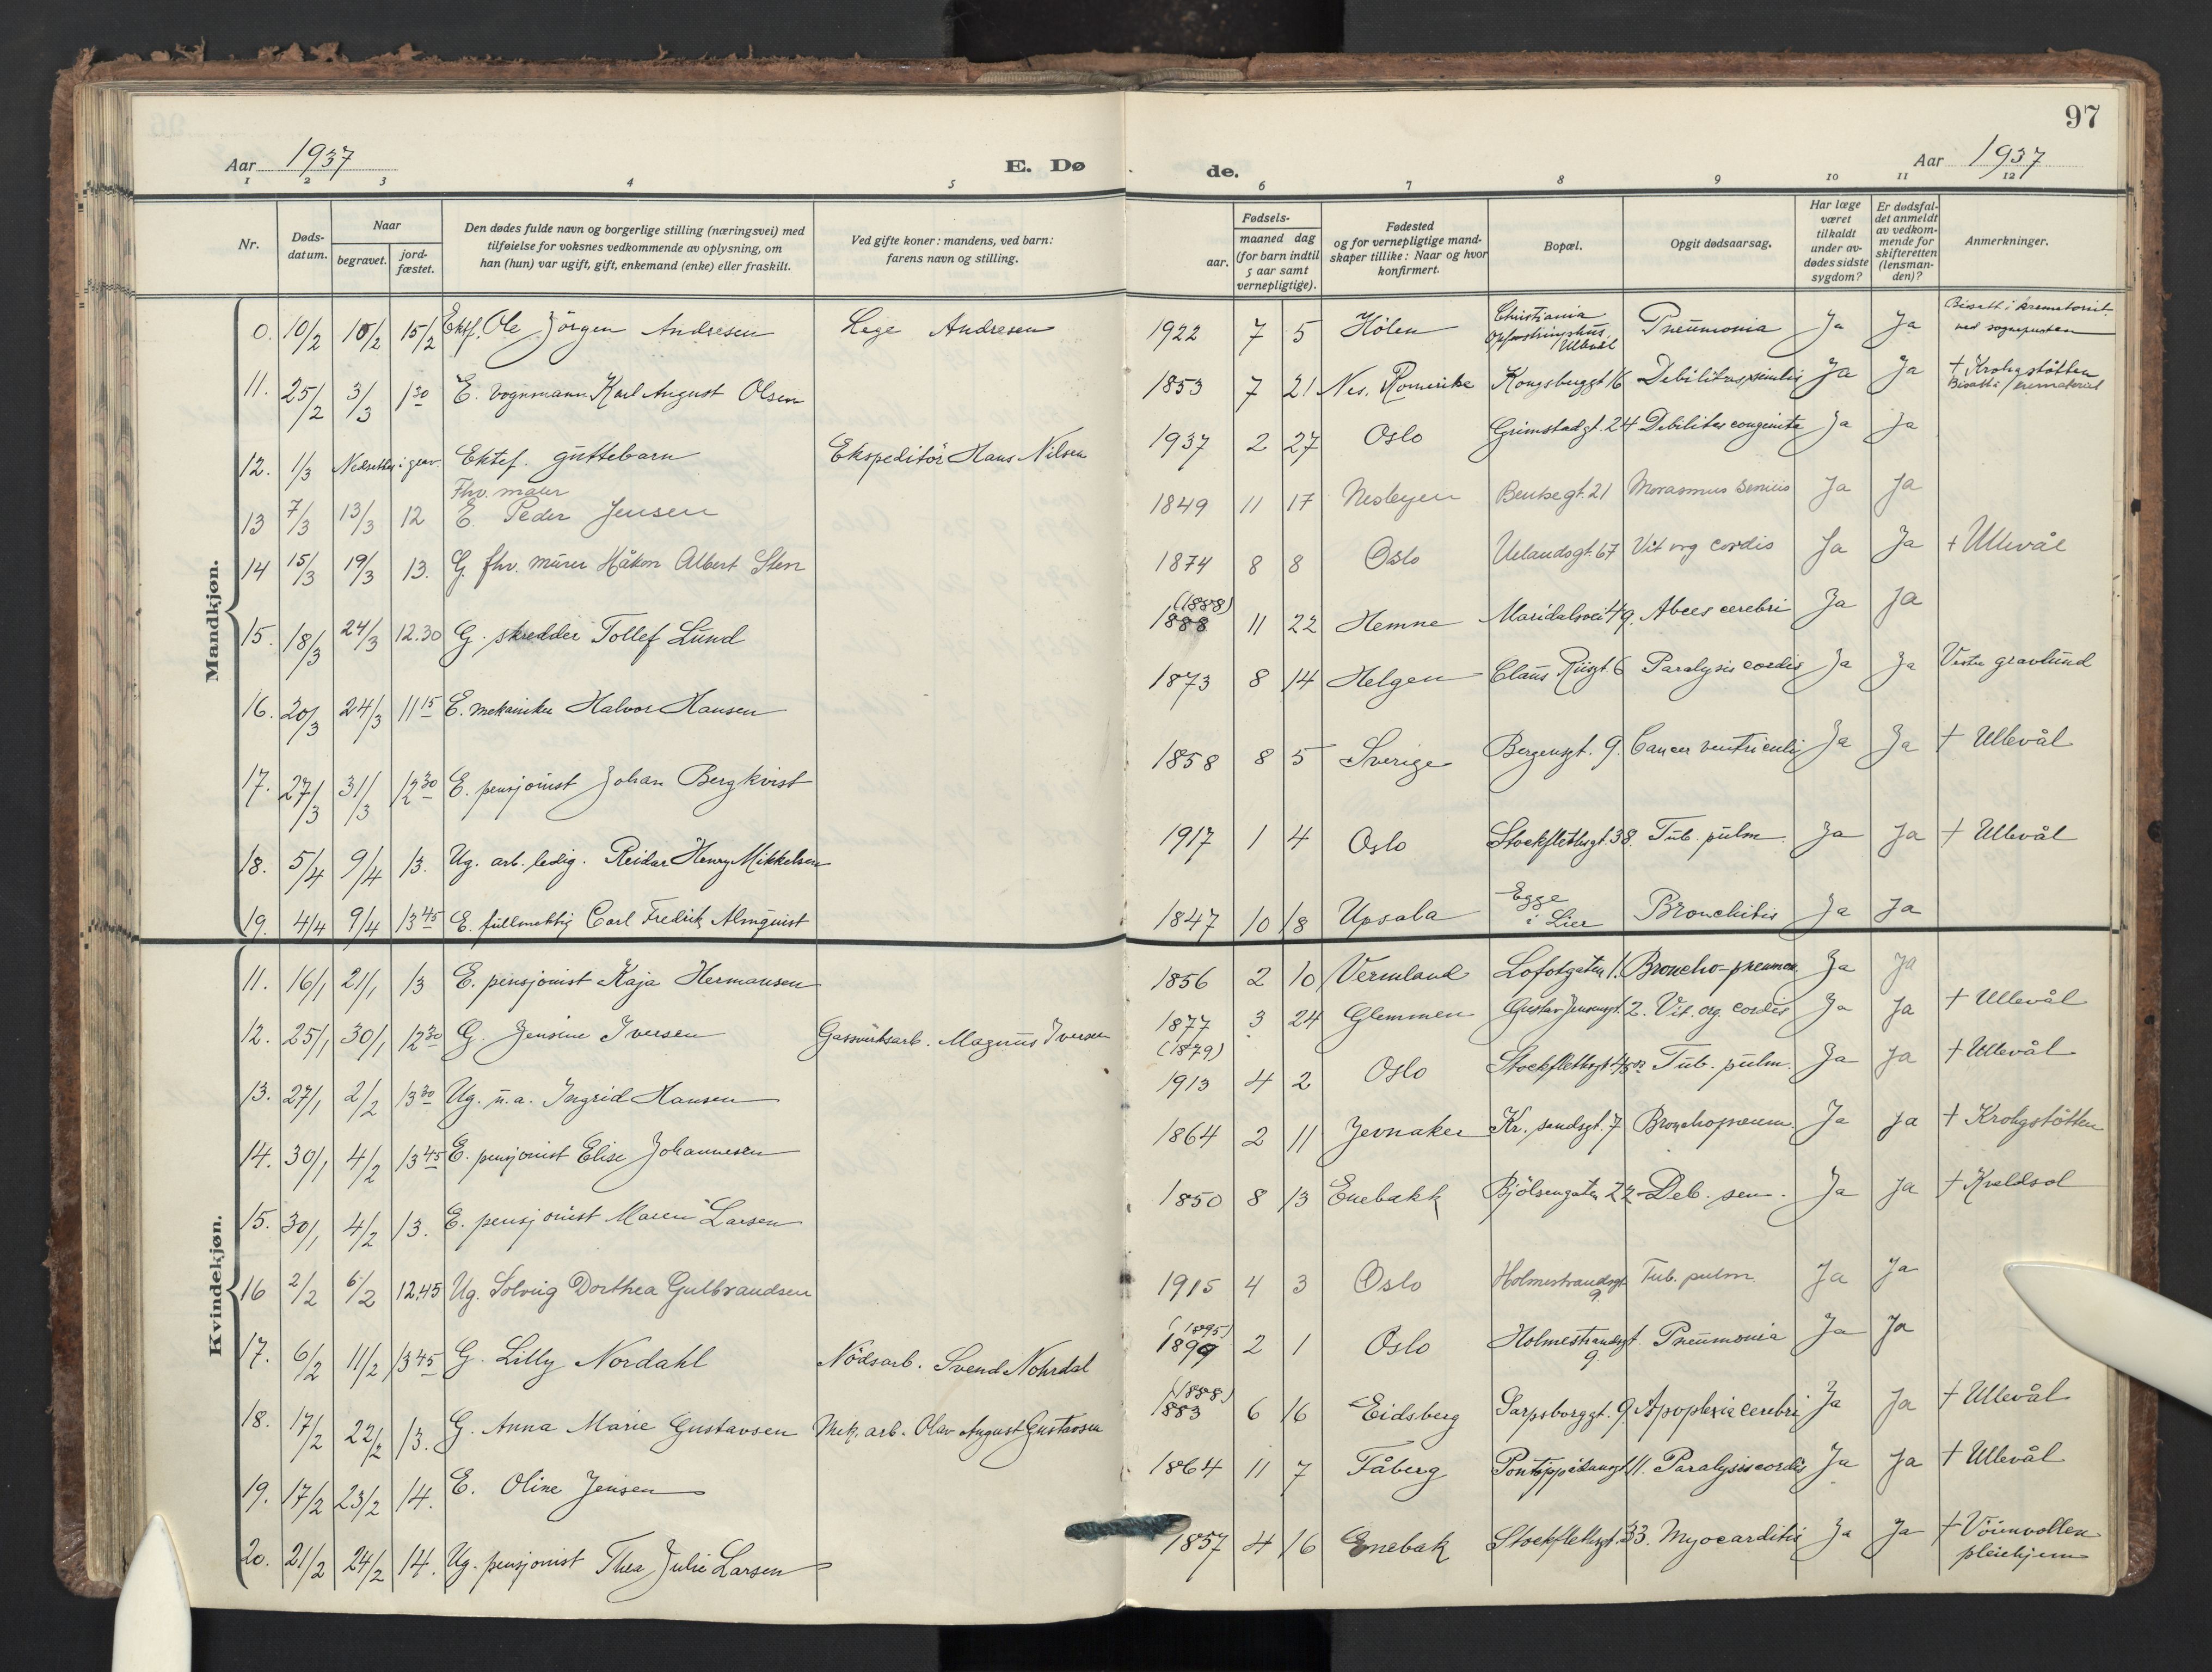 97
Aar 1937 E. Dø
de. Aar 1937
1 2 3 4 5
6 7 8 9 10 11 12
Nr. Døds-datum. Naar begravet. jord-fæstet. Den dødes fulde navn og borgerlige stilling (næringsvei) med tilføielse for voksnes vedkommende av oplysning, om han (hun) var ugift, gift, enkemand (enke) eller fraskilt. Ved gifte koner: mandens, ved barn: farens navn og stilling.
Fødsels- aar. maaned dag (for barn indtil 5 aar samt vernepligtige). Fødested og for vernepligtige mandskaper tillike: Naar og hvor konfirmert. Bopæl. Opgit dødsaarsag. Har læge været tilkaldt under avdødes sidste sygdom? Er dødsfaldet anmeldt av vedkommende for skifteretten (lensmanden)? Anmerkninger.
Mandkjøn.
0. 10/2 15/2 15/2 Ektf. Ole Jörgen Andresen Lege Andresen
1922 7 5 Hölen Christiania Opfostringshus, Ullevål Pneumonia Ja Ja Bisatt i krematoriet ved sognepresten
11. 25/2 3/3 1 30 E. vognmann Karl August Olsen
1853 7 21 Nes, Romerike Kongsberggt. 16 Debilitas senilis Ja Ja + Krohgstötten Bisatt i krematoriet
12. 1/3 Nedsettes i grav. Ektef. guttebarn Ekspeditör Hans Nilsen
1937 2 27 Oslo Grimstadgt. 24 Debilitas congenita Ja Ja
13 7/3 13/3 12 Fhv. maler E. Peder Jensen
1849 11 17 Nesbyen Bentsegt. 21 Marasmus senilis Ja Ja
14 15/3 19/3 13. G. fhv. murer Håkon Albert Sten
1874 8 8 Oslo Uelandsgt. 67 Vit org cordis Ja Ja + Ullevål
15. 18/3 24/3 12.30 G. skredder Tollef Lund
(1888) 1888 11 22 Hemne Maridalsvei 49. Abces cerebri Ja Ja
16. 20/3 24/3 11 15 E. mekaniker Halvor Hansen
1873 8 14 Helgen Claus Riisgt. 6 Paralysis cordis Ja Ja Vestre gravlund
17. 27/3 31/3 12 30 E. pensjonist Johan Bergkvist
1858 8 5 Sverige Bergensgt. 9. Cancer ventriculi Ja Ja + Ullevål
18. 5/4 9/4 13. Ug. arb. ledig. Reidar Henry Mikkelsen
1917 1 4 Oslo Stockflethsgt. 38. Tub. pulm. Ja Ja + Ullevål
19. 4/4 9/4 13 45 E. fullmektig Carl Fredrik Almquist
1847 10 18 Upsala Egge i Lier Bronchitis Ja Ja
Kvindekjøn.
11. 16/1 21/1 13 E. pensjonist Kaja Hermansen
1856 2 10 Vermland Lofotgaten 1. Broncho-pneumon. Ja Ja
12. 25/1 30/1 12 30 G. Jensine Iversen Gassverksarb. Magnus Iversen
1877 (1879) 3 24 Glemmen Gustav Jensensgt. 2. Vit. org. cordis Ja Ja + Ullevål
13. 27/1 2/2 13 30 Ug. u.a. Ingrid Hansen
1913 4 2 Oslo Stockflethsgt. Tub. pulm. Ja Ja + Ullevål
14. 30/1 4/2 13 45 E. pensjonist Elise Johannesen
1864 2 11 Jevnaker Kr. sandsgt. 7 Bronchopneum. Ja Ja + Krohgstötten
15. 30/1 4/2 13. E. pensjonist Maren Larsen
1850 8 13 Enebakk Bjölsengaten 22 Deb. sen. Ja Ja + Kveldsol
16 2/2 6/2 12.45 Ug. Solveig Dorthea Gulbrandsen
1915 4 3 Oslo Holmestrandsgt. 9. Tub. pulm. Ja Ja
17. 6/2 11/2 13 45 G. Lilly Nordahl Nödsarb. Svend Nohrdal
(1895) 1899 2 1 Oslo Holmestrandsgt. 9. Pneumonia Ja Ja
18. 17/2 22/2 13. G. Anna Marie Gustavsen Mek. arb. Olav August Gustavsen
(1888) 1883 6 16 Eidsberg Sarpsborggt. 9 Apoplexia cerebri Ja Ja + Ullevål
19. 17/2 23/2 14. E. Oline Jensen
1864 11 7 Fåberg Pontoppidansgt. 11. Paralysis cordis Ja Ja + Ullevål
20. 21/2 24/2 14. Ug. pensjonist Thea Julie Larsen
1857 4 16 Enebak Stockflethsgt. 33. Myocarditis Ja Ja + Vöienvollen pleiehjem